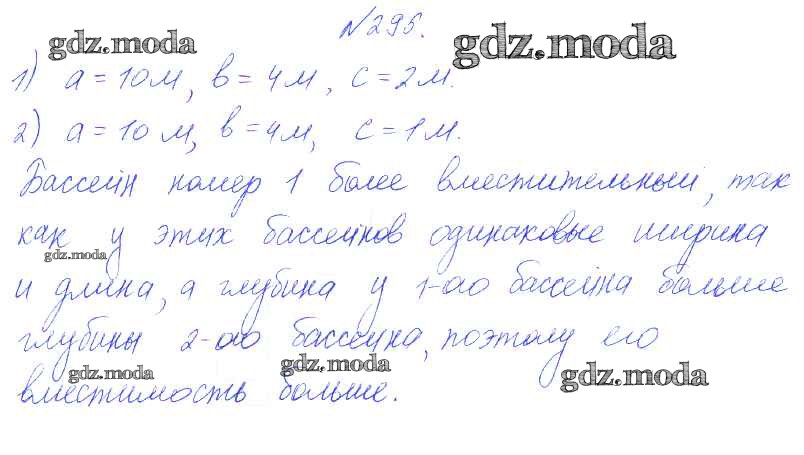 №295.
gdz.moda
gdz.moda
1) a = 10 м, в = 4 м, с = 2 м.
2) a = 10 м, в = 4 м, с = 1 м.
Бассейн номер 1 более вместительный, так
как у этих бассейнов одинаковые ширина
gdz.moda
и длина, а глубина у 1-ао бассейна больше
глубины 2-ао бассейна, поэтому его
gdz.moda
gdz.moda
gdz.moda
вместимость больше.